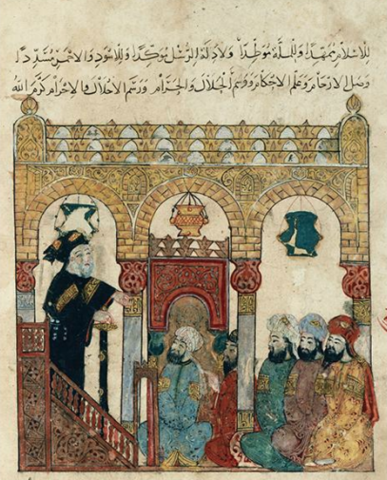 للاسلام ممهدا وللملة موطدا ولادلة الرسل موكدا وللاسود والاحمر مسددا
وصل الارحام وعلم الاحكام ووسم الحلال والحرام ورسم الاحلال والاحرام كرم الله